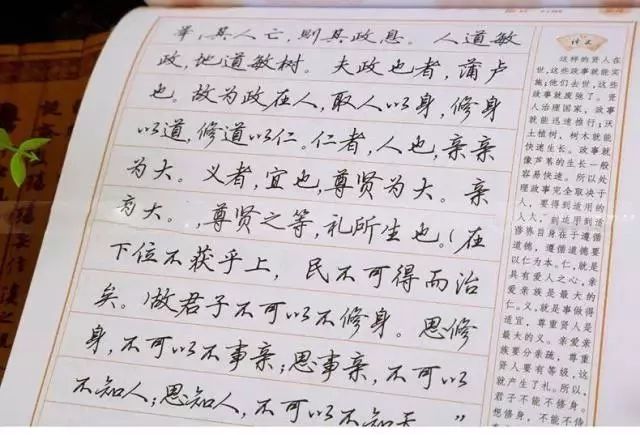 举,其人亡,则其政息。 人道敏
政,地道敏树。 夫政也者,蒲卢
也。故为政在人,取人以身,修身
以道,修道以仁。仁者,人也,亲亲
为大。义者,宜也,尊贤为大。亲
为大。,尊贤之等,礼所生也。(在
下位不获乎上, 民不可得而治
矣。)故君子不可以不修身。思修
身,不可以不事亲;思事亲,不可以
不知人;思知人,不可以不知天。”
译文
这样的贤人在
世,这些政事就能实
施;他们去世,这些
政事就废弛了。贤
人治理国家,政事
就能迅速推行;沃
土植树,树木就能
快速生长。政事就
像芦苇的生长一般
容易快速。所以处
理政事完全取决于
人,要得到适用的
修养自身在于遵循
道德,遵循道德要
以仁为本。仁,就是
具有爱人之心,亲
爱亲族是最大的
仁。义,就是事做得
适宜,尊重贤人是
最大的义。亲爱亲
族要分亲疏,尊重
贤人要有等级,这
就产生了礼。所以,
君子不能不修身。
想修身,不能不侍